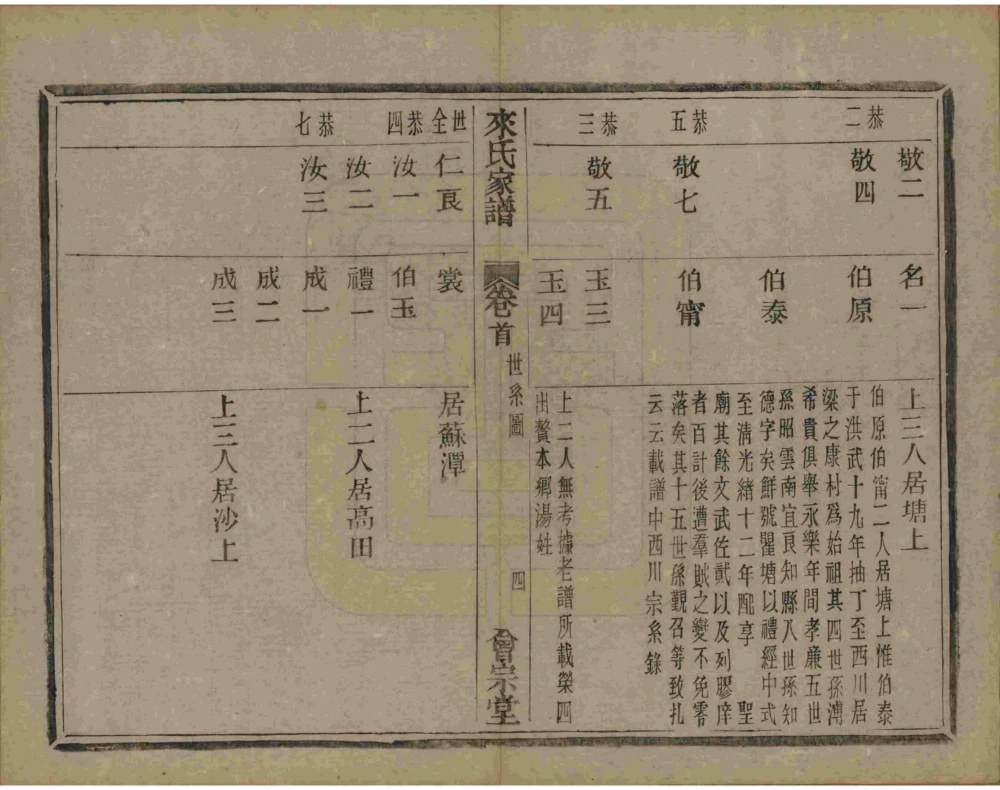 敬二 名一 上三人居塘上
恭二 敬四 伯原 伯原伯甯二人居塘上惟伯泰
于洪武十九年抽丁至西川居
梁之康村爲始祖其四世孫溥
希貴俱舉永樂年間孝廉五世
孫昭雲南宜良知縣八世孫知
伯泰 德字矣鮮號瞿塘以禮經中式
至淸光緒十二年配享 聖
廟其餘文武佐貳以及列膠庠
恭五 敬七 伯甯 者百計後遭羣賊之變不免零
落矣其十五世孫覲召等致扎
云云載譜中西川宗系錄
恭三 敬五 玉三
玉四 上二人無考據老譜所載榮四
出贅本鄉湯姓
來氏家譜 卷首 世系圖 四 會宗堂
世全 仁良 裳 居蘇潭
恭四 汝一 伯玉
汝二 禮一 上二人居高田
恭七 汝三 成一
成二
成三 上三人居沙上